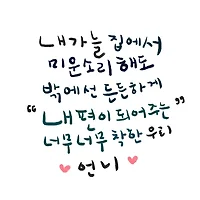 내가 늘 집에서
미운소리 해도
밖에선 든든하게
“내편이 되어주는”
너무너무 착한 우리
언니